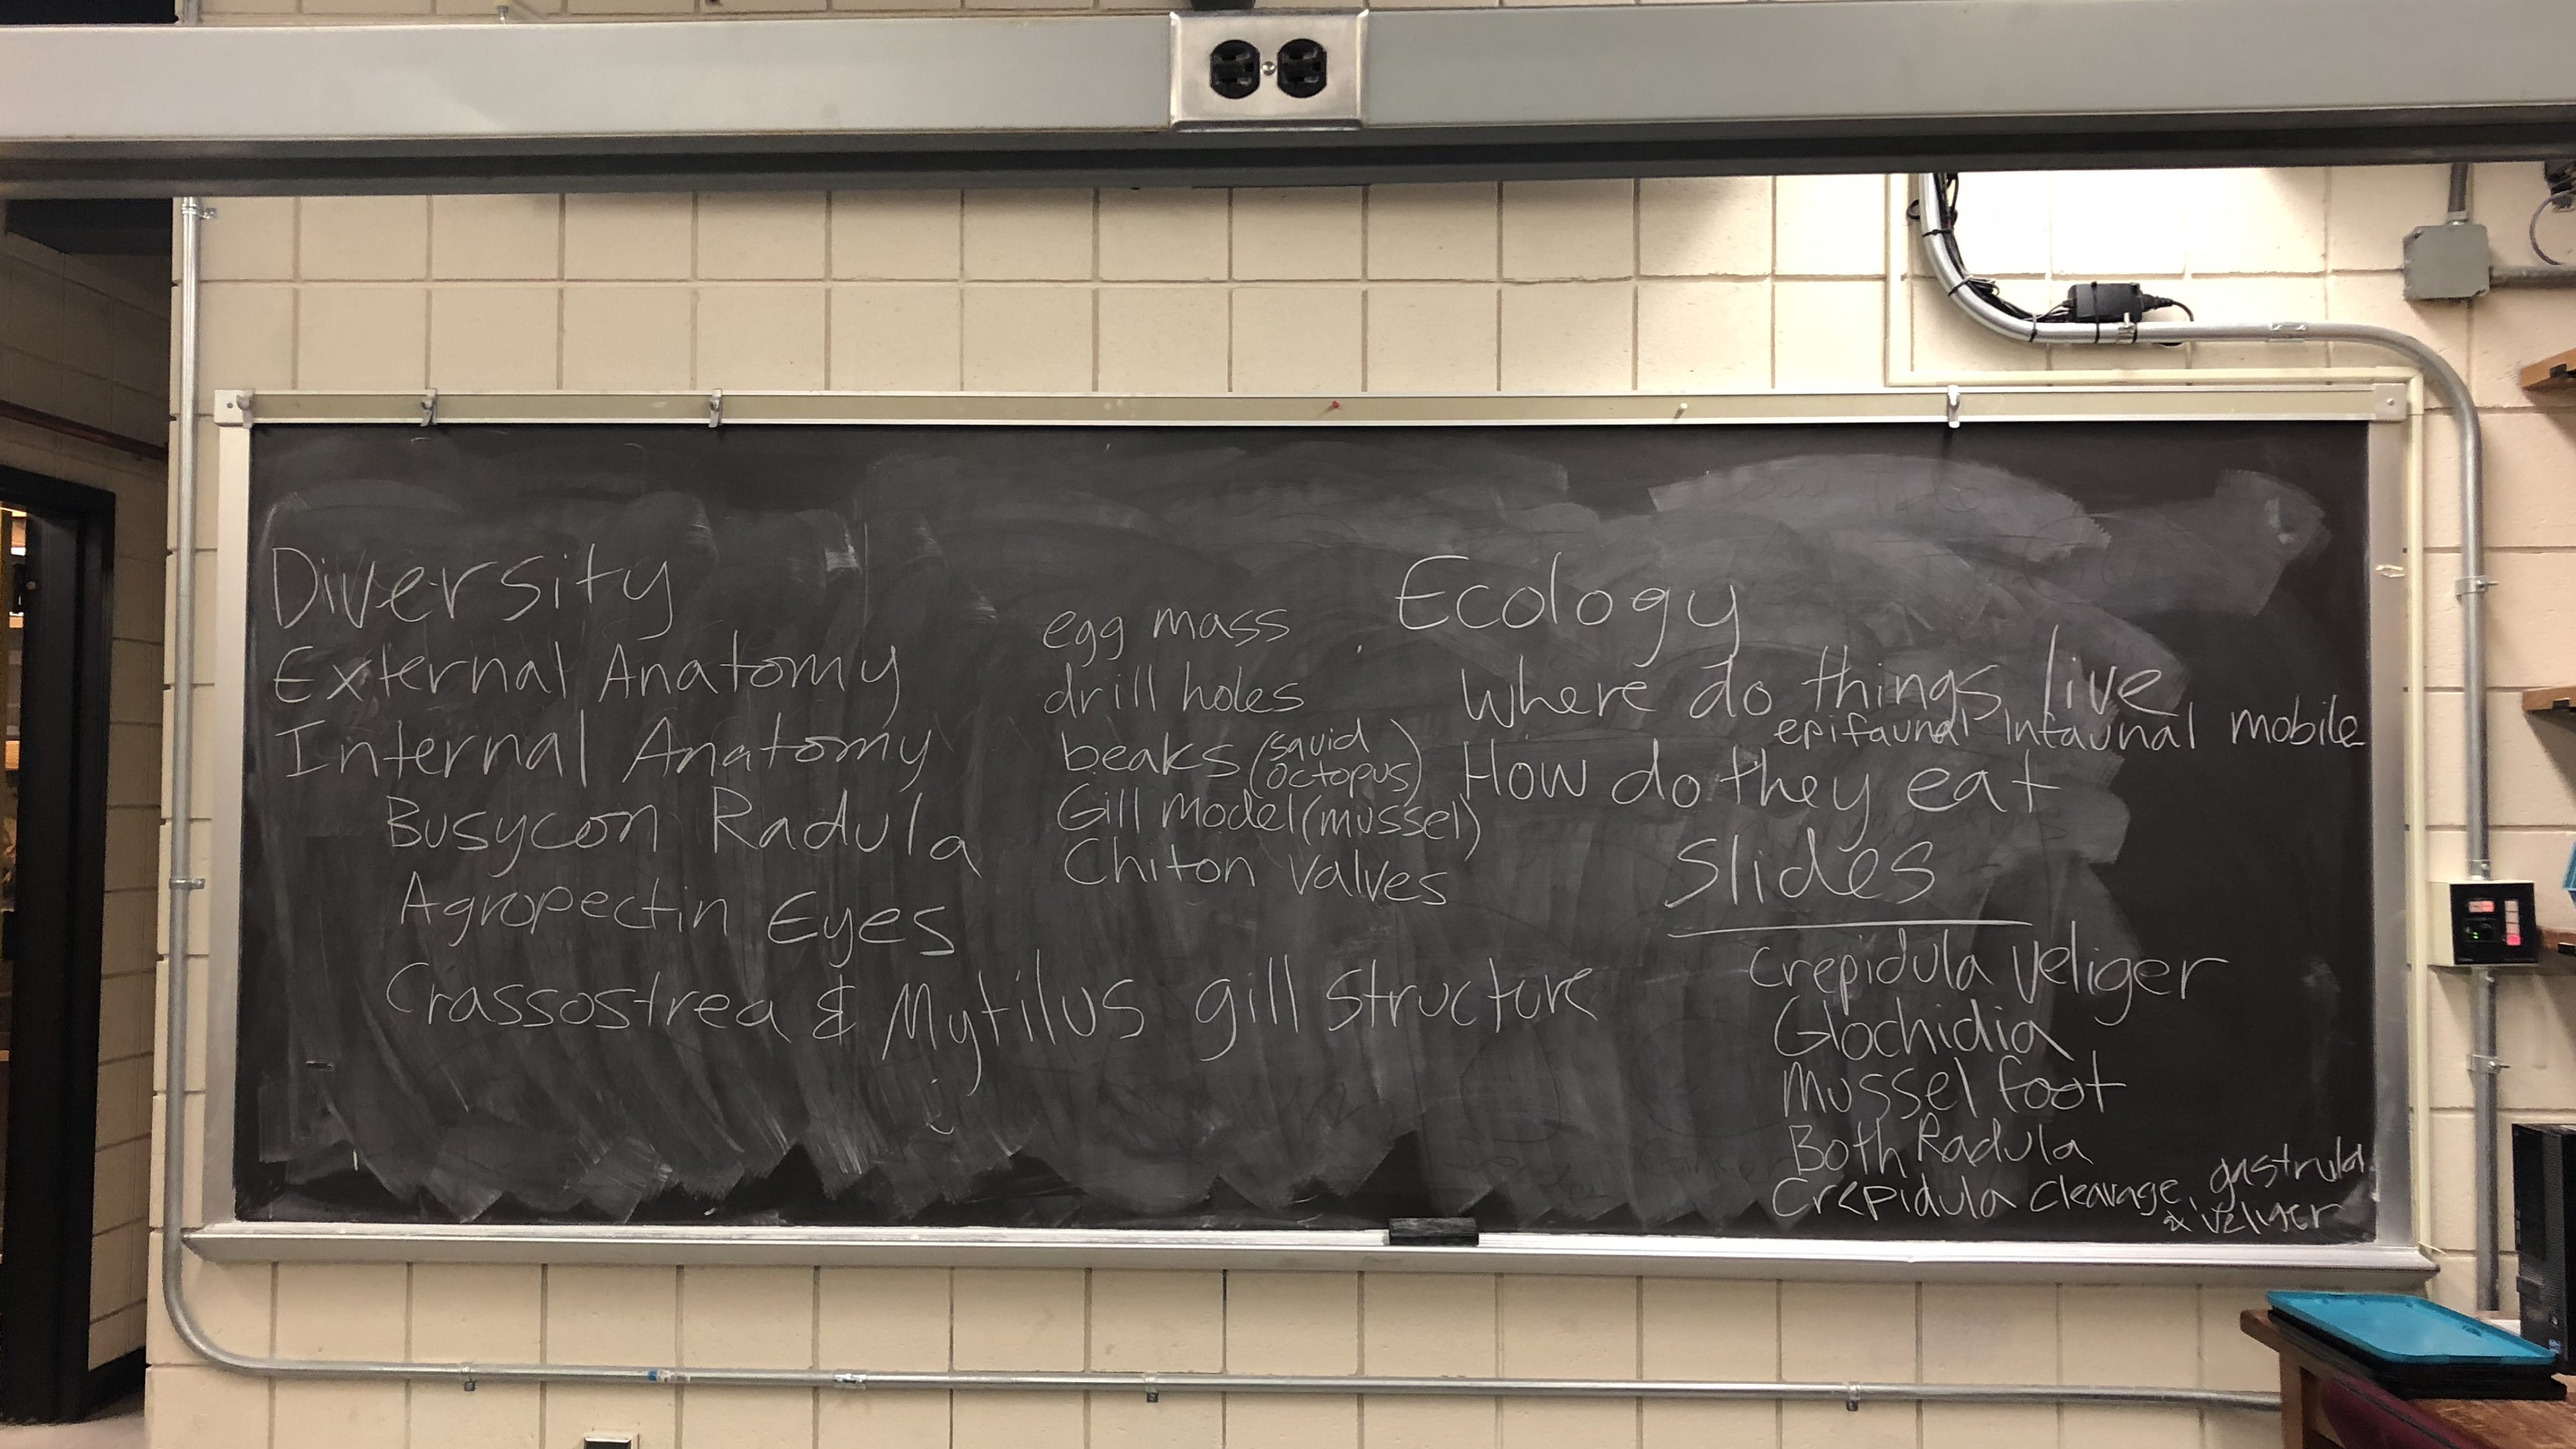 Diversity
External Anatomy
Internal Anatomy
Busycon Radula
Agropectin Eyes
Crassostrea & Mytilus gill structure
egg mass
drill holes
beaks (squid
octopus)
Gill model (mussel)
Chiton Valves
Ecology
Where do things live
epifaunal Infaunal mobile
How do they eat
Slides
Crepidula Veliger
Glochidia
Mussel foot
Both Radula
Crepidula cleavage, gastrula
& veliger